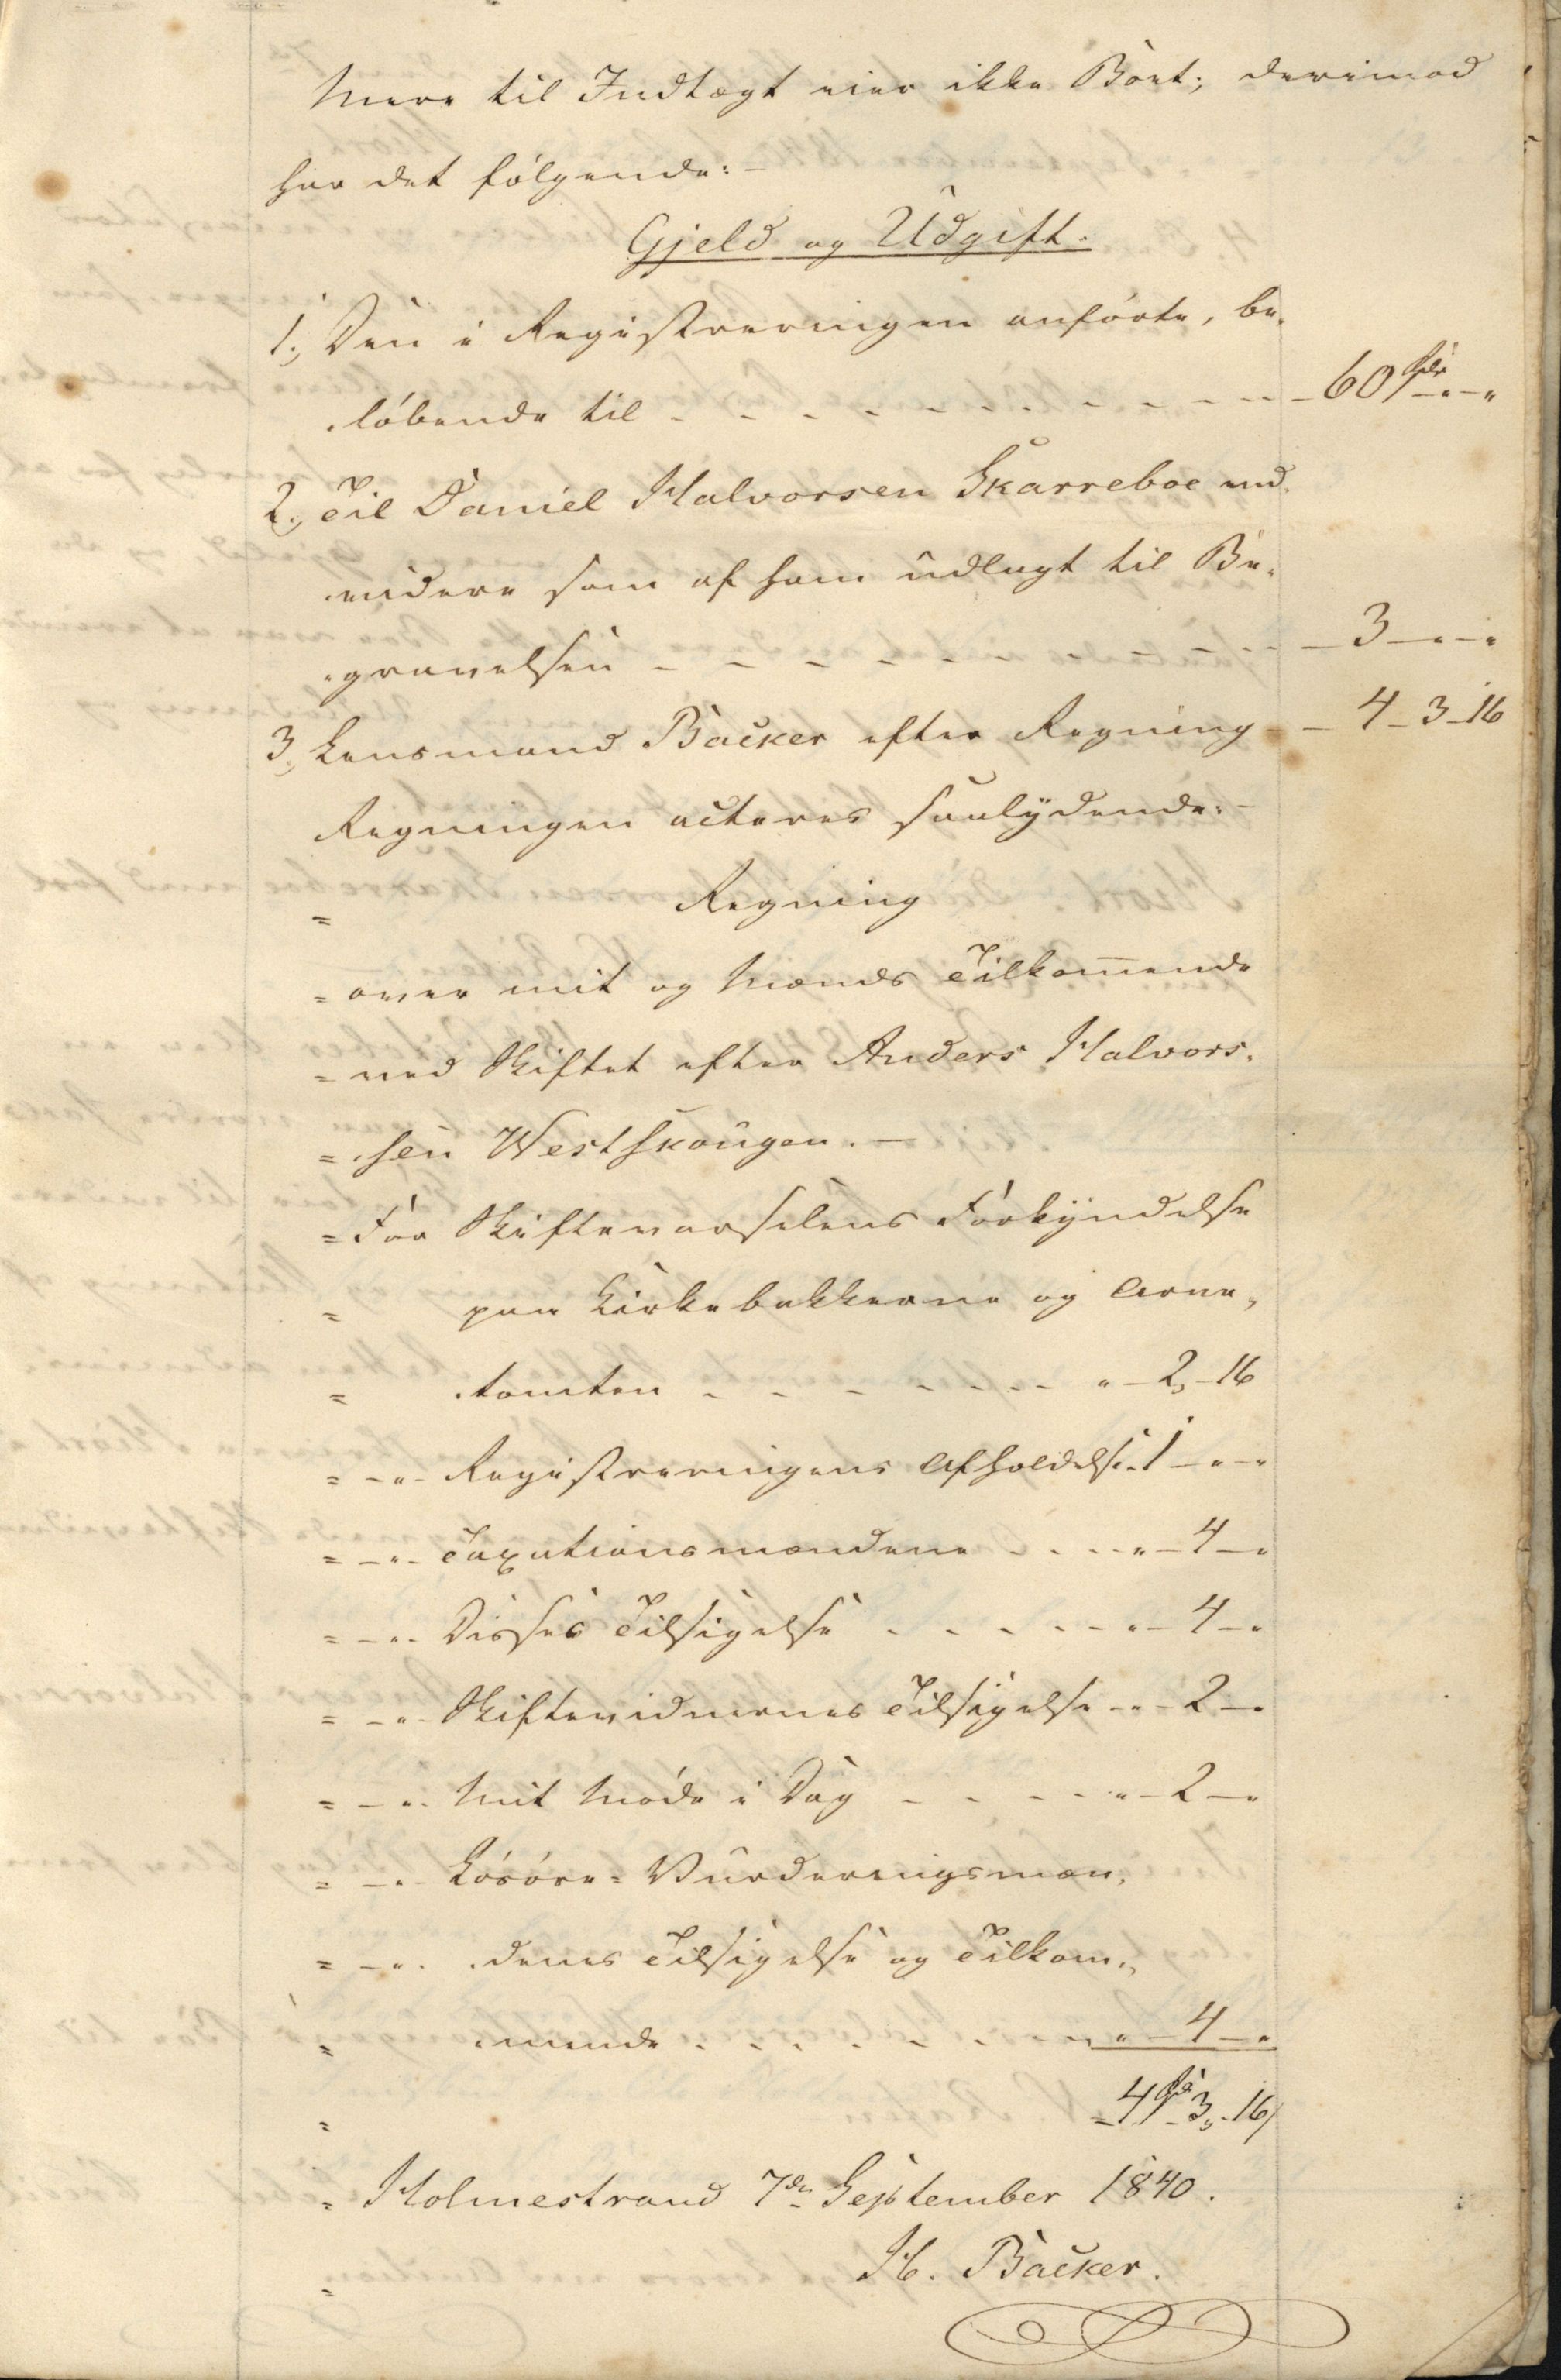 Mere til Indtægt eier ikke Boet; derimod
har det følgende:-
Gjeld og Udgift.
1, Den i Registreringen anførte, be-
løbende til - - - - - - - - - - - 60 Spd - " - "
2, Til Daniel Halvorsen Skarreboe end-
videre som af ham udlagt til Be-
gravelsen - - - - - - - - - 3 - " - "
3, Lensmand Backer efter Regning - 4 - 3 - 16
Regningen acteres saalydende:-
= Regning
= over mit og Mænds Tilkommende
= ved Skiftet efter Anders Halvors-
= sen Westskougen. -
= For Skiftevarselens Forkyndelse
= paa Kirkebakkerne og Arne-
= tomten - - - - - - - " - 2 - 16
= - " - Registreringens Afholdelse 1 - " - "
= - " - Taxationsmændene - - - " - 4 - "
= - " - Disses Tilsigelse - - - - - " - 4 - "
= - " - Skiftevidnernes Tilsigelse - " - 2 - "
= - " - Mit Møde i Dag - - - - " - 2 - "
= - " - Løsøre-Vurderingsmæn-
= - " - denes Tilsigelse og Tilkom-
= mende - - - - - - " - 4 - "
= = 4 Spd 3, - 16
= Holmestrand 7de September 1840.
= H. Backer.